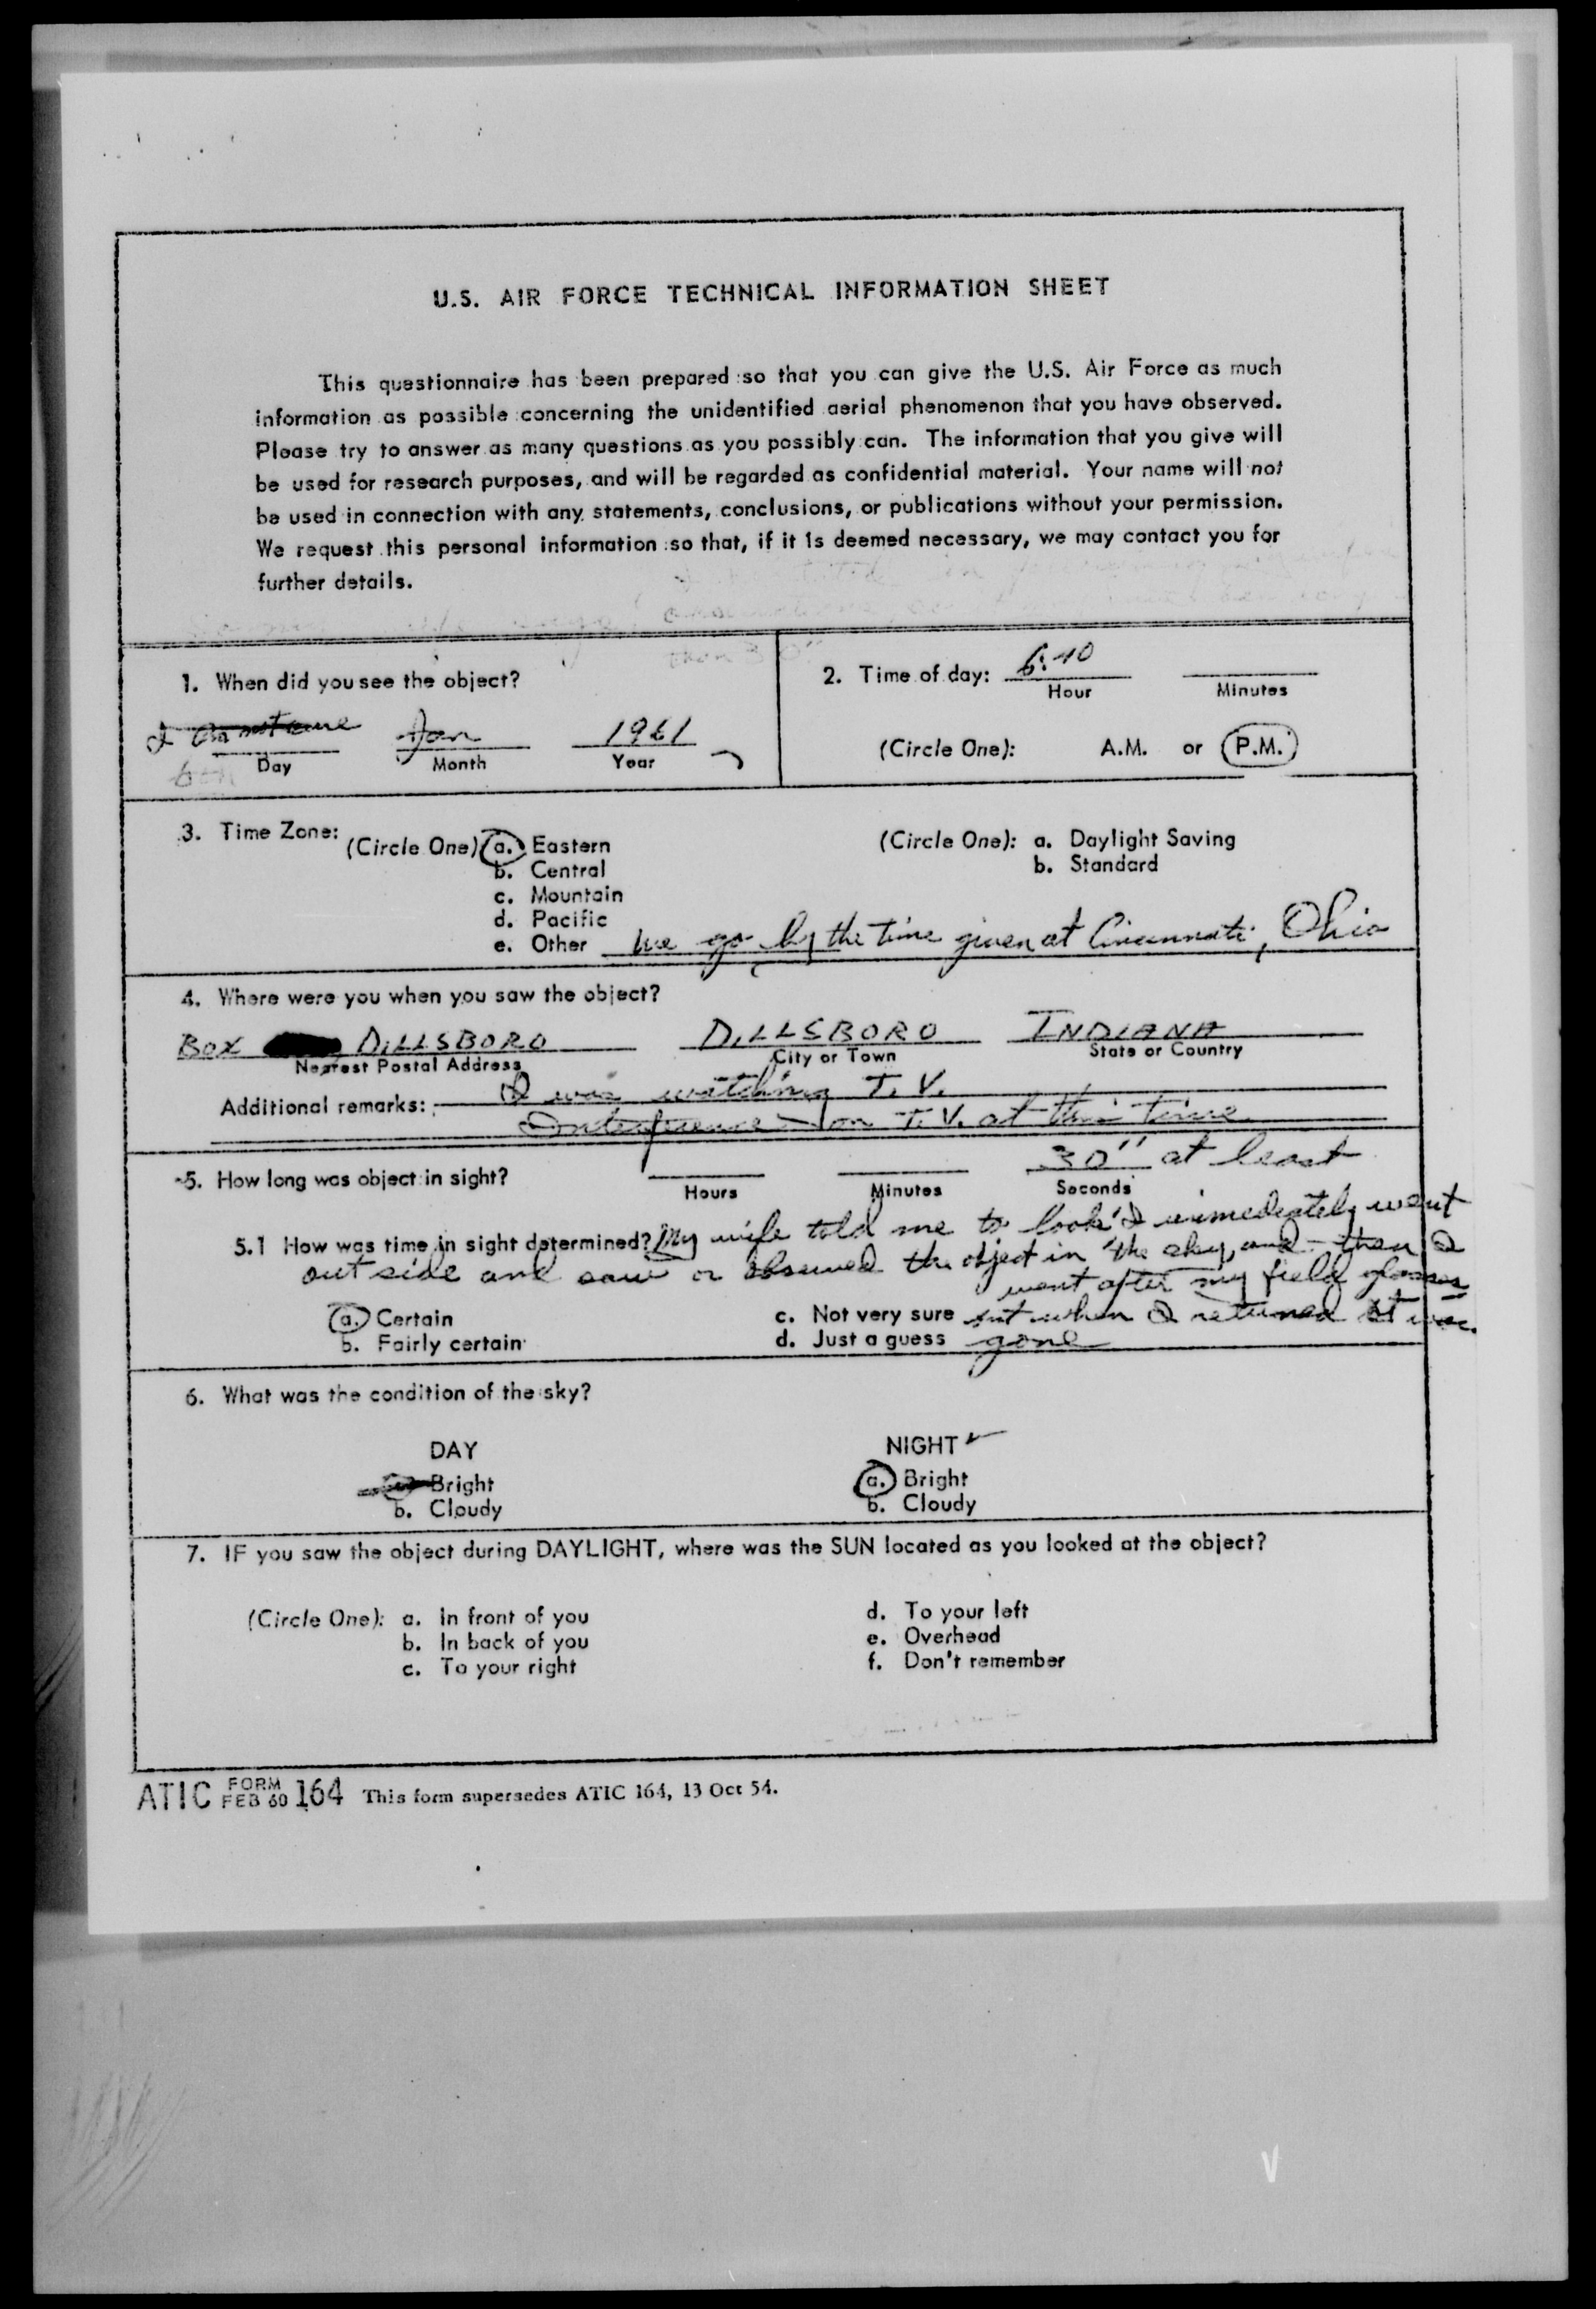 U.S. AIR FORCE TECHNICAL INFORMATION SHEET
This questionnaire has been prepared so that you can give the U.S. Air Force as much
information as possible concerning the unidentified aerial phenomenon that you have observed.
Please try to answer as many questions as you possibly can. The information that you give will
be used for research purposes, and will be regarded as confidential material. Your name will not
be used in connection with any statements, conclusions, or publications without your permission.
We request this personal information so that, if it is deemed necessary, we may contact you for
further details.
1. When did you see the object?
I am not sure Jan 1961
Day Month Year
2. Time of day: 6:40
Hour Minutes
(Circle One): A.M. or P.M.
3. Time Zone:
(Circle One) a. Eastern
b. Central
c. Mountain
d. Pacific
e. Other we go by the time given at Cincinnati, Ohio
(Circle One): a. Daylight Saving
b. Standard
4. Where were you when you saw the object?
BOX DILLSBORO DILLSBORO INDIANA
Nearest Postal Address City or Town State or Country
Additional remarks: I was watching T.V.
Interference on T.V. at this time
5. How long was object in sight? 30" at least
Hours Minutes Seconds
5.1 How was time in sight determined? My wife told me to look I immediately went
out side and saw or observed the object in the sky, and then I
went after my field glasses
but when I returned it was
gone
a. Certain
b. Fairly certain
c. Not very sure
d. Just a guess
6. What was the condition of the sky?
DAY
Bright
b. Cloudy
NIGHT ✓
a. Bright
b. Cloudy
7. IF you saw the object during DAYLIGHT, where was the SUN located as you looked at the object?
(Circle One): a. In front of you
b. In back of you
c. To your right
d. To your left
e. Overhead
f. Don't remember
ATIC FORM FEB 60 164 This form supersedes ATIC 164, 13 Oct 54.